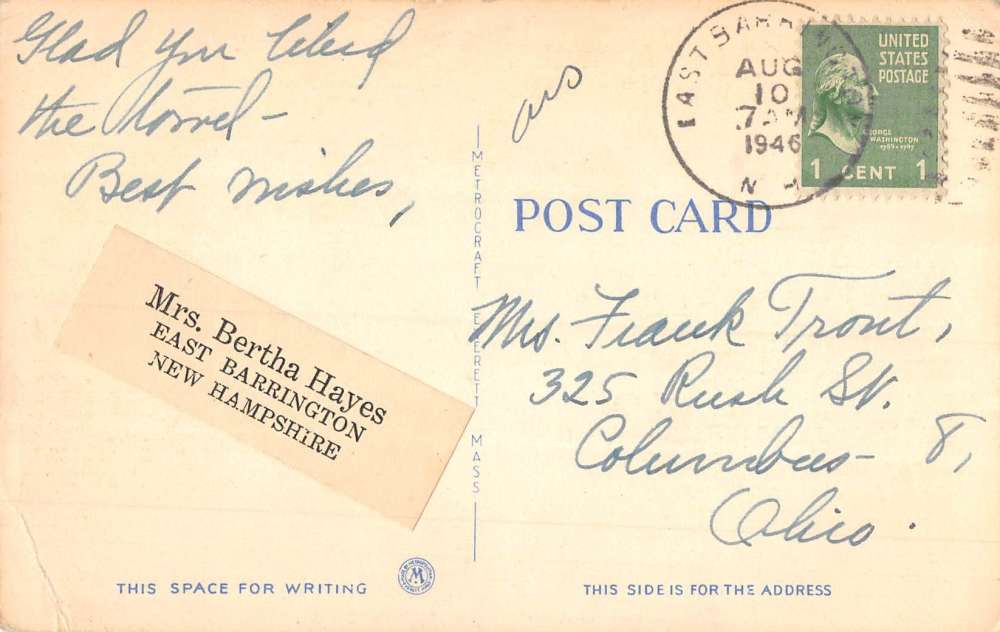 Glad you liked
the
Best wishes,
ans
Mrs. Bertha Hayes
EAST BARRINGTON
NEW HAMPSHIRE
THIS SPACE FOR WRITING
METROCRAFT EVERETT MASS
EAST BARRINGTON
AUG
10
7 AM
1946
N.H.
UNITED
STATES
POSTAGE
GEORGE
WASHINGTON
1789-1797
1 CENT 1
POST CARD
Mrs. Frank Trout,
325 Rush St.
Columbus - 8,
Ohio.
M
THIS SIDE IS FOR THE ADDRESS